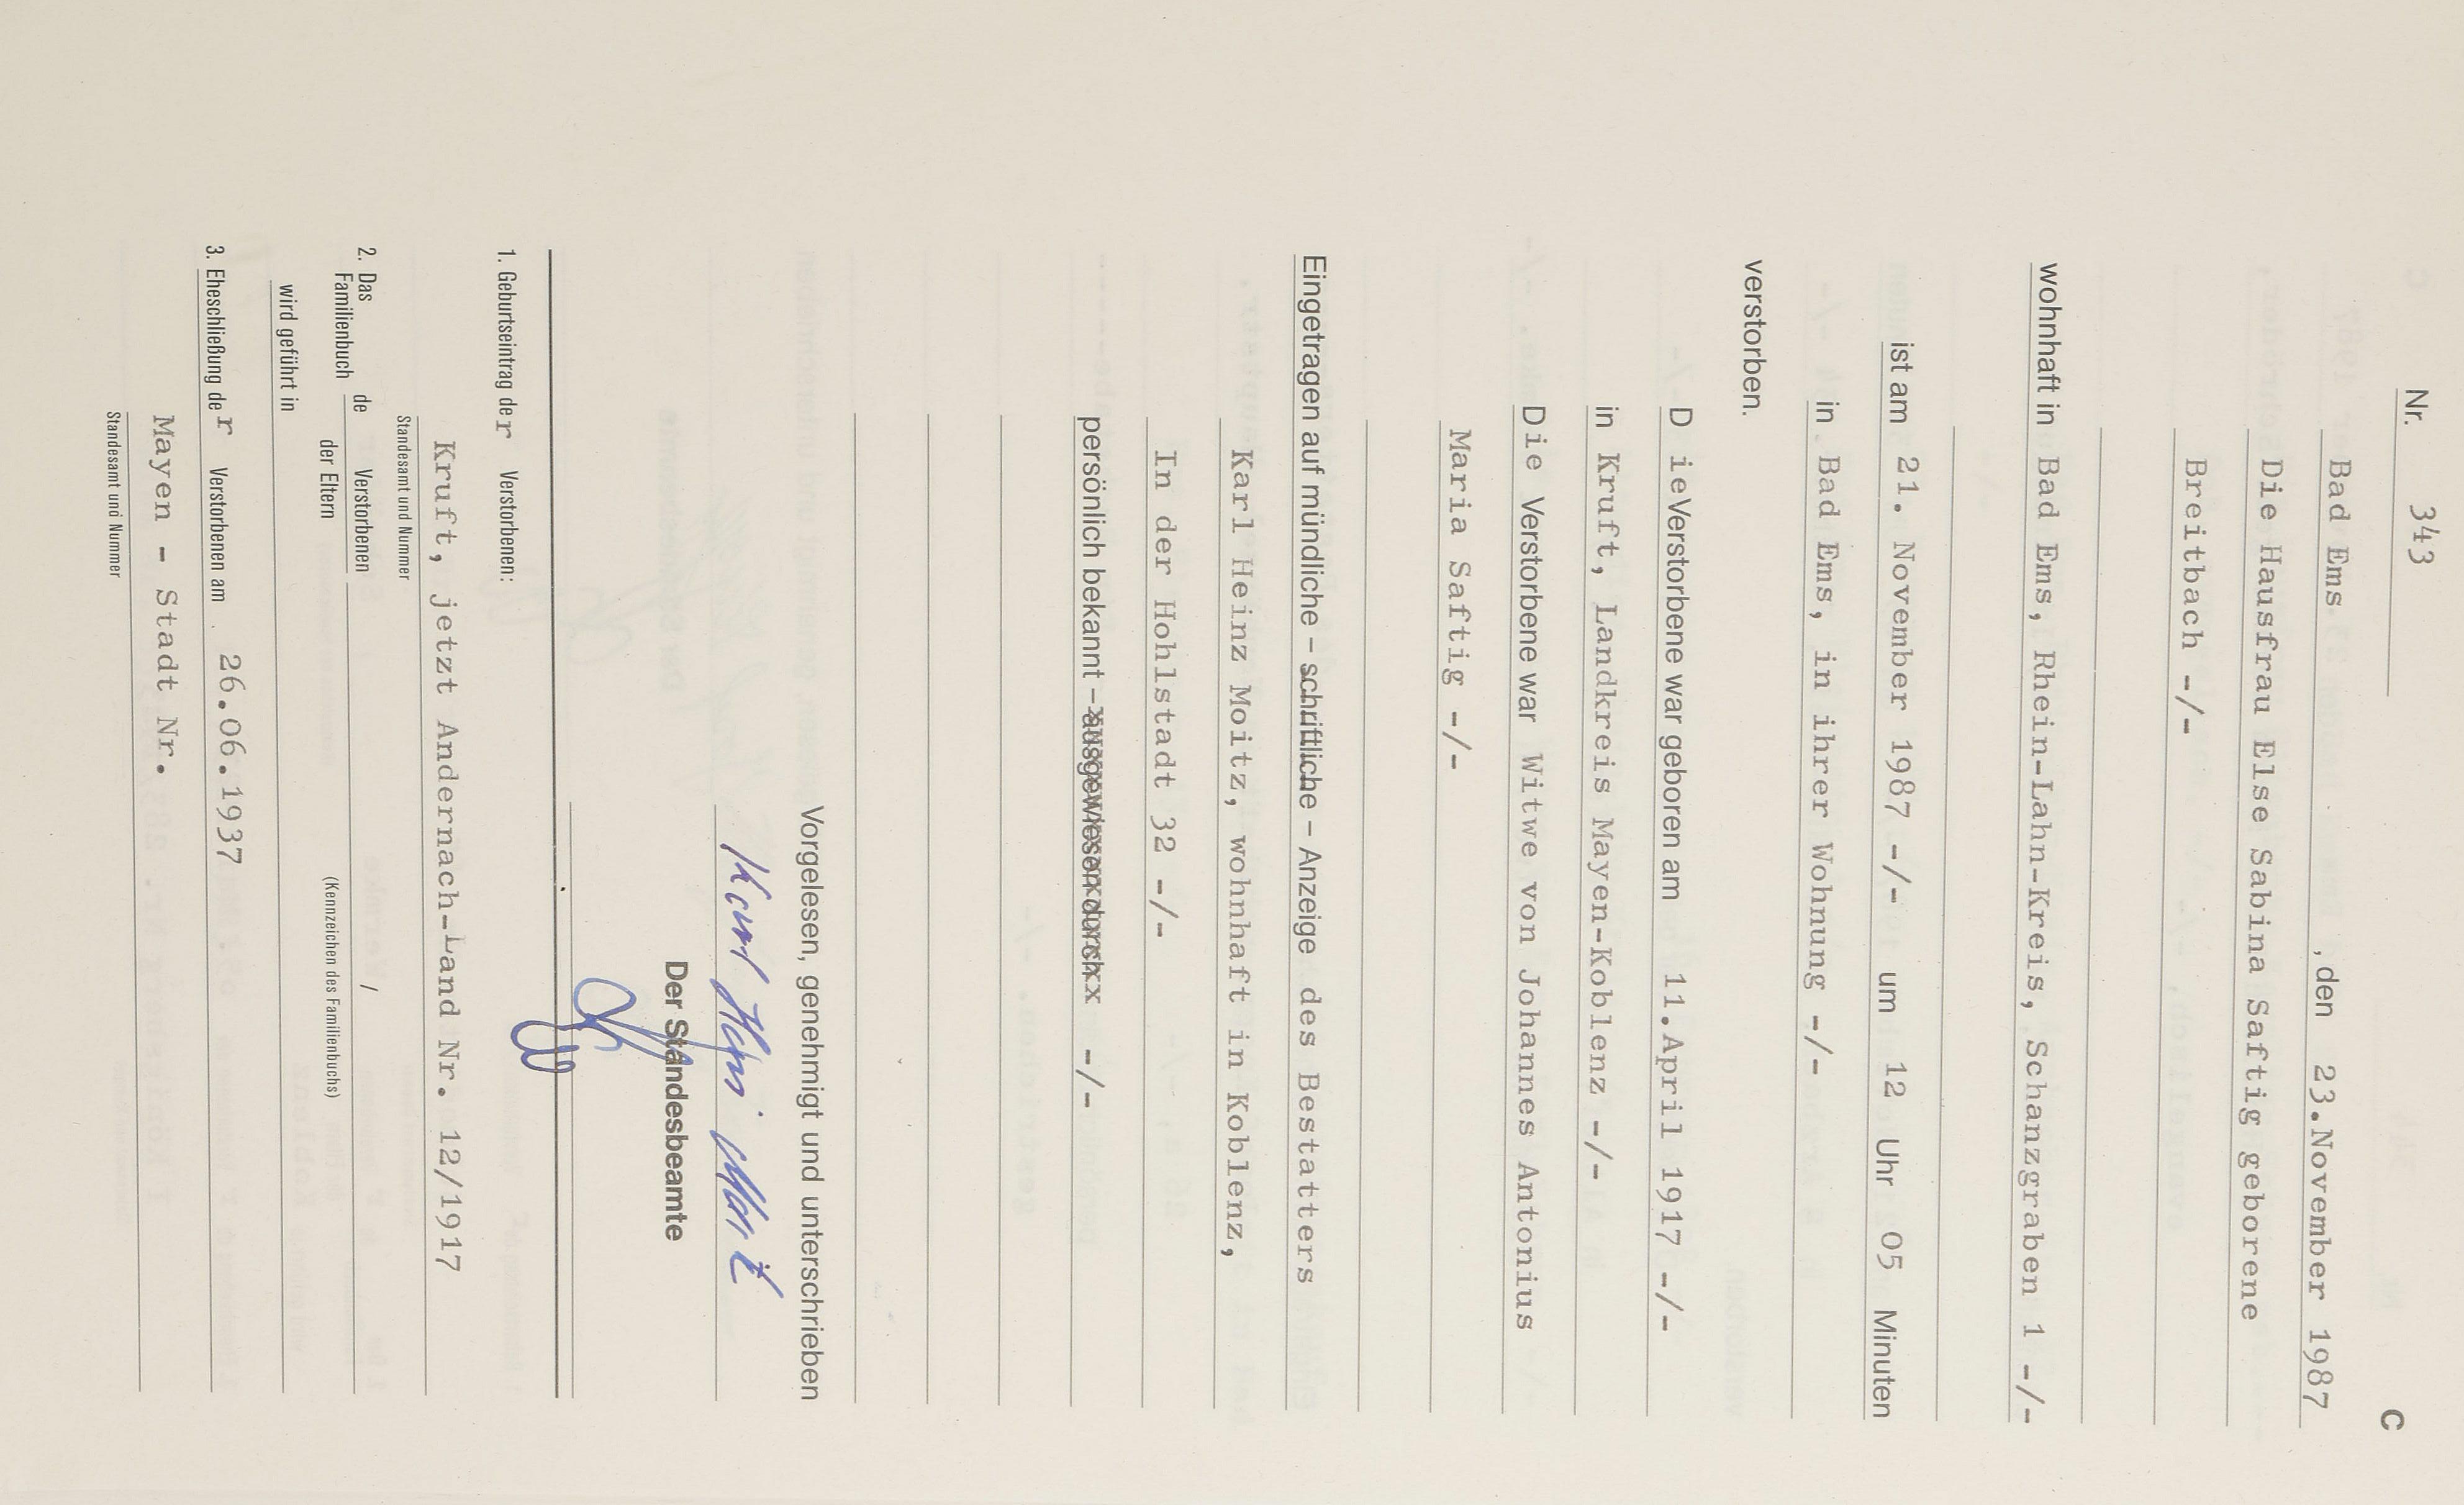 C
Nr. 343
Bad Ems, den 23.November 1987
Die Hausfrau Else Sabina Saftig geborene
Breitbach -/-
wohnhaft in Bad Ems, Rhein-Lahn-Kreis, Schanzgraben 1 -/-
ist am 21. November 1987 -/- um 12 Uhr 05 Minuten
in Bad Ems, in ihrer Wohnung -/-
verstorben.
D ieVerstorbene war geboren am 11.April 1917 -/-
in Kruft, Landkreis Mayen-Koblenz -/-
Die Verstorbene war Witwe von Johannes Antonius
Maria Saftig -/-
Eingetragen auf mündliche – schriftliche – Anzeige des Bestatters
Karl Heinz Moitz, wohnhaft in Koblenz,
In der Hohlstadt 32 -/-
persönlich bekannt – ausgewiesen durch -/-
Vorgelesen, genehmigt und unterschrieben
Karl Heinz Moitz
Der Standesbeamte
1. Geburtseintrag der Verstorbenen:
Kruft, jetzt Andernach-Land Nr. 12/1917
Standesamt und Nummer
2. Das Familienbuch de Verstorbenen /
der Eltern (Kennzeichen des Familienbuchs)
wird geführt in
3. Eheschließung der Verstorbenen am 26.06.1937
Mayen - Stadt Nr.
Standesamt und Nummer